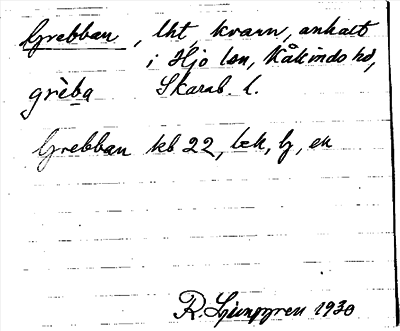 Grebban, lht, kvarn, anhalt
i Hjo lsn, Kåkinds hd,
grèba Skarab. l.
Grebban kb 22, bk, bj, ek
R. Ljunggren 1930